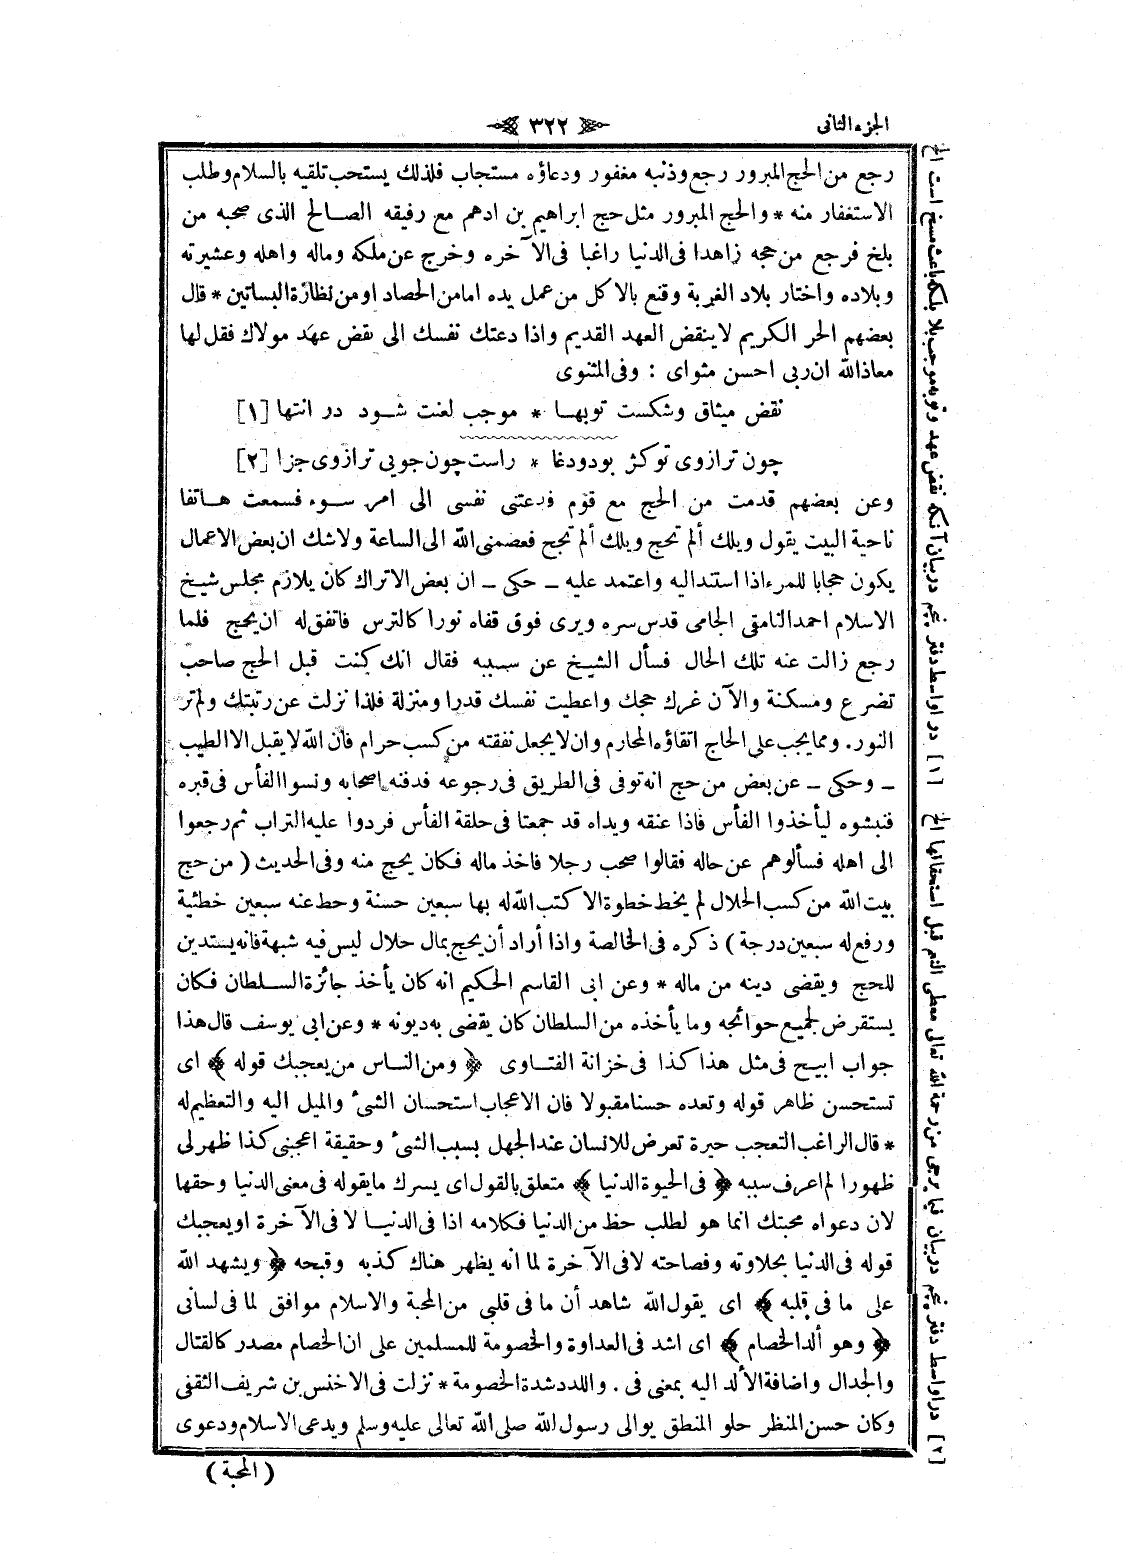 الجزء الثانى
٣٢٢
رجع من الحج المبرور رجع وذنبه مغفور ودعاؤه مستجاب فلذلك يستحب تلقيه بالسلام وطلب
الاستغفار منه * والحج المبرور مثل حج ابراهيم بن ادهم مع رفيقه الصالح الذى صحبه من
بلخ فرجع من حجه زاهدا فى الدنيا راغبا فى الآخره وخرج عن ملكه وماله واهله وعشيرته
وبلاده واختار بلاد الغربة وقنع بالاكل من عمل يده اما من الحصاد او من نظارة البساتين * قال
بعضهم الحر الكريم لا ينقض العهد القديم واذا دعتك نفسك الى نقض عهد مولاك فقل لها
معاذ الله ان ربى احسن مثواى : وفى المثنوى
نقض ميثاق وشكست توبها * موجب لعنت شود در انتها [١]
چون ترازوى توكژ بود ودغا * راست چون جويى ترازوى جزا [٢]
وعن بعضهم قدمت من الحج مع قوم فدعتنى نفسى الى امر سوء فسمعت هاتفا
ناحية البيت يقول ويلك ألم تحج ويلك ألم تحج فعصمنى الله الى الساعة ولا شك ان بعض الاعمال
يكون حجابا للمرء اذا استند اليه واعتمد عليه ـ حكى ـ ان بعض الاتراك كان يلازم مجلس شيخ
الاسلام احمد النامقى الجامى قدس سره ويرى فوق قفاه نورا كالترس فاتفق له ان يحج فلما
رجع زالت عنه تلك الحال فسأل الشيخ عن سببه فقال انك كنت قبل الحج صاحب
تضرع ومسكنة والآن غرك حجك واعطيت نفسك قدرا ومنزلة فلذا نزلت عن رتبتك ولم تر
النور . ومما يجب على الحاج اتقاؤه المحارم وان لا يجعل نفقته من كسب حرام فان الله لا يقبل الا الطيب
ـ وحكى ـ عن بعض من حج انه توفى فى الطريق فى رجوعه فدفنه اصحابه ونسوا الفأس فى قبره
فنبشوه ليأخذوا الفأس فاذا عنقه ويداه قد جمعتا فى حلقة الفأس فردوا عليه التراب ثم رجعوا
الى اهله فسألوهم عن حاله فقالوا صحب رجلا فاخذ ماله فكان يحج منه وفى الحديث ( من حج
بيت الله من كسب الحلال لم يخط خطوة الا كتب الله له بها سبعين حسنة وحط عنه سبعين خطئية
ورفع له سبعين درجة ) ذكره فى الخالصة واذا أراد أن يحج بمال حلال ليس فيه شبهة فانه يستدين
للحج ويقضى دينه من ماله * وعن ابى القاسم الحكيم انه كان يأخذ جائزة السلطان فكان
يستقرض لجميع حوائجه وما يأخذه من السلطان كان يقضى به ديونه * وعن ابى يوسف قال هذا
جواب ابيح فى مثل هذا كذا فى خزانة الفتاوى ﴿ ومن الناس من يعجبك قوله ﴾ اى
تستحسن ظاهر قوله وتعده حسنا مقبولا فان الاعجاب استحسان الشىء والميل اليه والتعظيم له
* قال الراغب التعجب حيرة تعرض للانسان عند الجهل بسبب الشىء وحقيقة اعجبنى كذا ظهر لى
ظهورا لم اعرف سببه ﴿ فى الحيوة الدنيا ﴾ متعلق بالقول اى يسرك ما يقوله فى معنى الدنيا وحقها
لان دعواه محبتك انما هو لطلب حظ من الدنيا فكلامه اذا فى الدنيا لا فى الآخرة او يعجبك
قوله فى الدنيا بحلاوته وفصاحته لا فى الآخرة لما انه يظهر هناك كذبه وقبحه ﴿ ويشهد الله
على ما فى قلبه ﴾ اى يقول الله شاهد أن ما فى قلبى من المحبة والاسلام موافق لما فى لسانى
﴿ وهو ألد الخصام ﴾ اى اشد فى العداوة والخصومة للمسلمين على ان الخصام مصدر كالقتال
والجدال واضافة الألد اليه بمعنى فى . واللدد شدة الخصومة * نزلت فى الاخنس بن شريف الثقفى
وكان حسن المنظر حلو المنطق يوالى رسول الله صلى الله تعالى عليه وسلم ويدعى الاسلام ودعوى
( المحبة )
[١] در اواسط دفتر پنجم در بيان آنكه نقض عهد وتوبه موجب بلا بلكه باعث مسخ است الخ
[٢] در اواسط دفتر پنجم در بيان فيما يرجى من رحمة الله تعالى معطى النعم قبل استحقاقها الخ